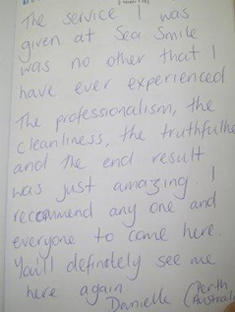 The service I was
given at Sea Smile
was no other that I
have ever experienced
The professionalism, the
cleanliness, the truthfulne
and the end result
was just amazing. I
recommend any one and
everyone to come here.
You'll definetely see me
here again
Danielle (Perth
Australi